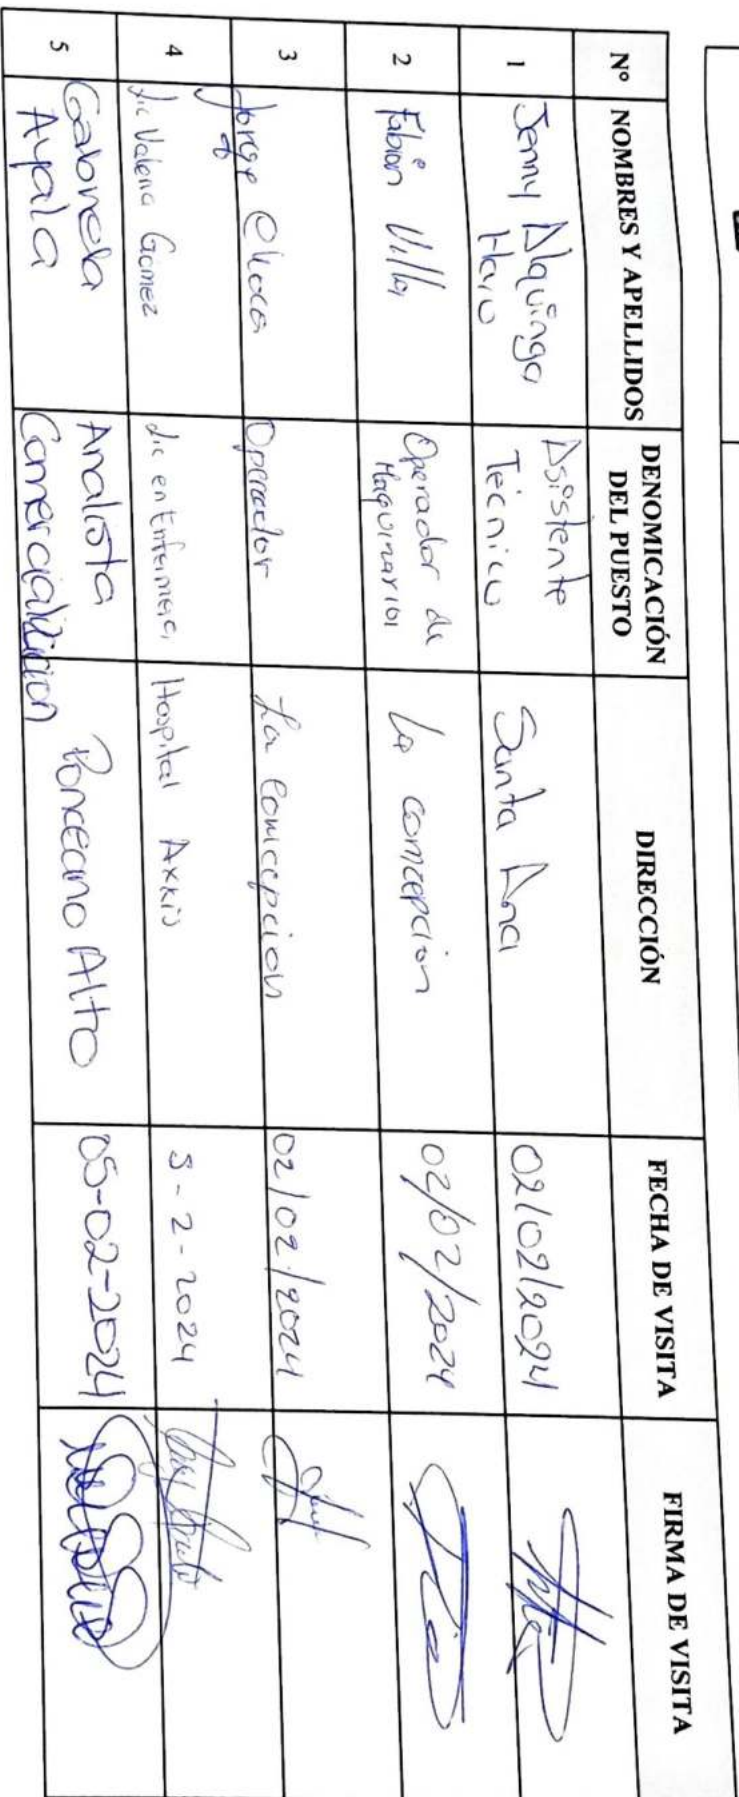 Nº NOMBRES Y APELLIDOS DENOMICACIÓN DEL PUESTO DIRECCIÓN FECHA DE VISITA FIRMA DE VISITA
1 Jenny Alquinga Haro Asistente Técnico Santa Ana 02/02/2024
2 Fabian Villa Operador de Maquinaria La Concepcion 02/02/2024
3 Jorge Choca Operador La Concepcion 02/02/2024
4 Lic Valeria Gomez Lic en Enfermeria Hospital Axxis 5-2-2024
5 Gabriela Ayala Analista Comercialización Ponceano Alto 05-02-2024